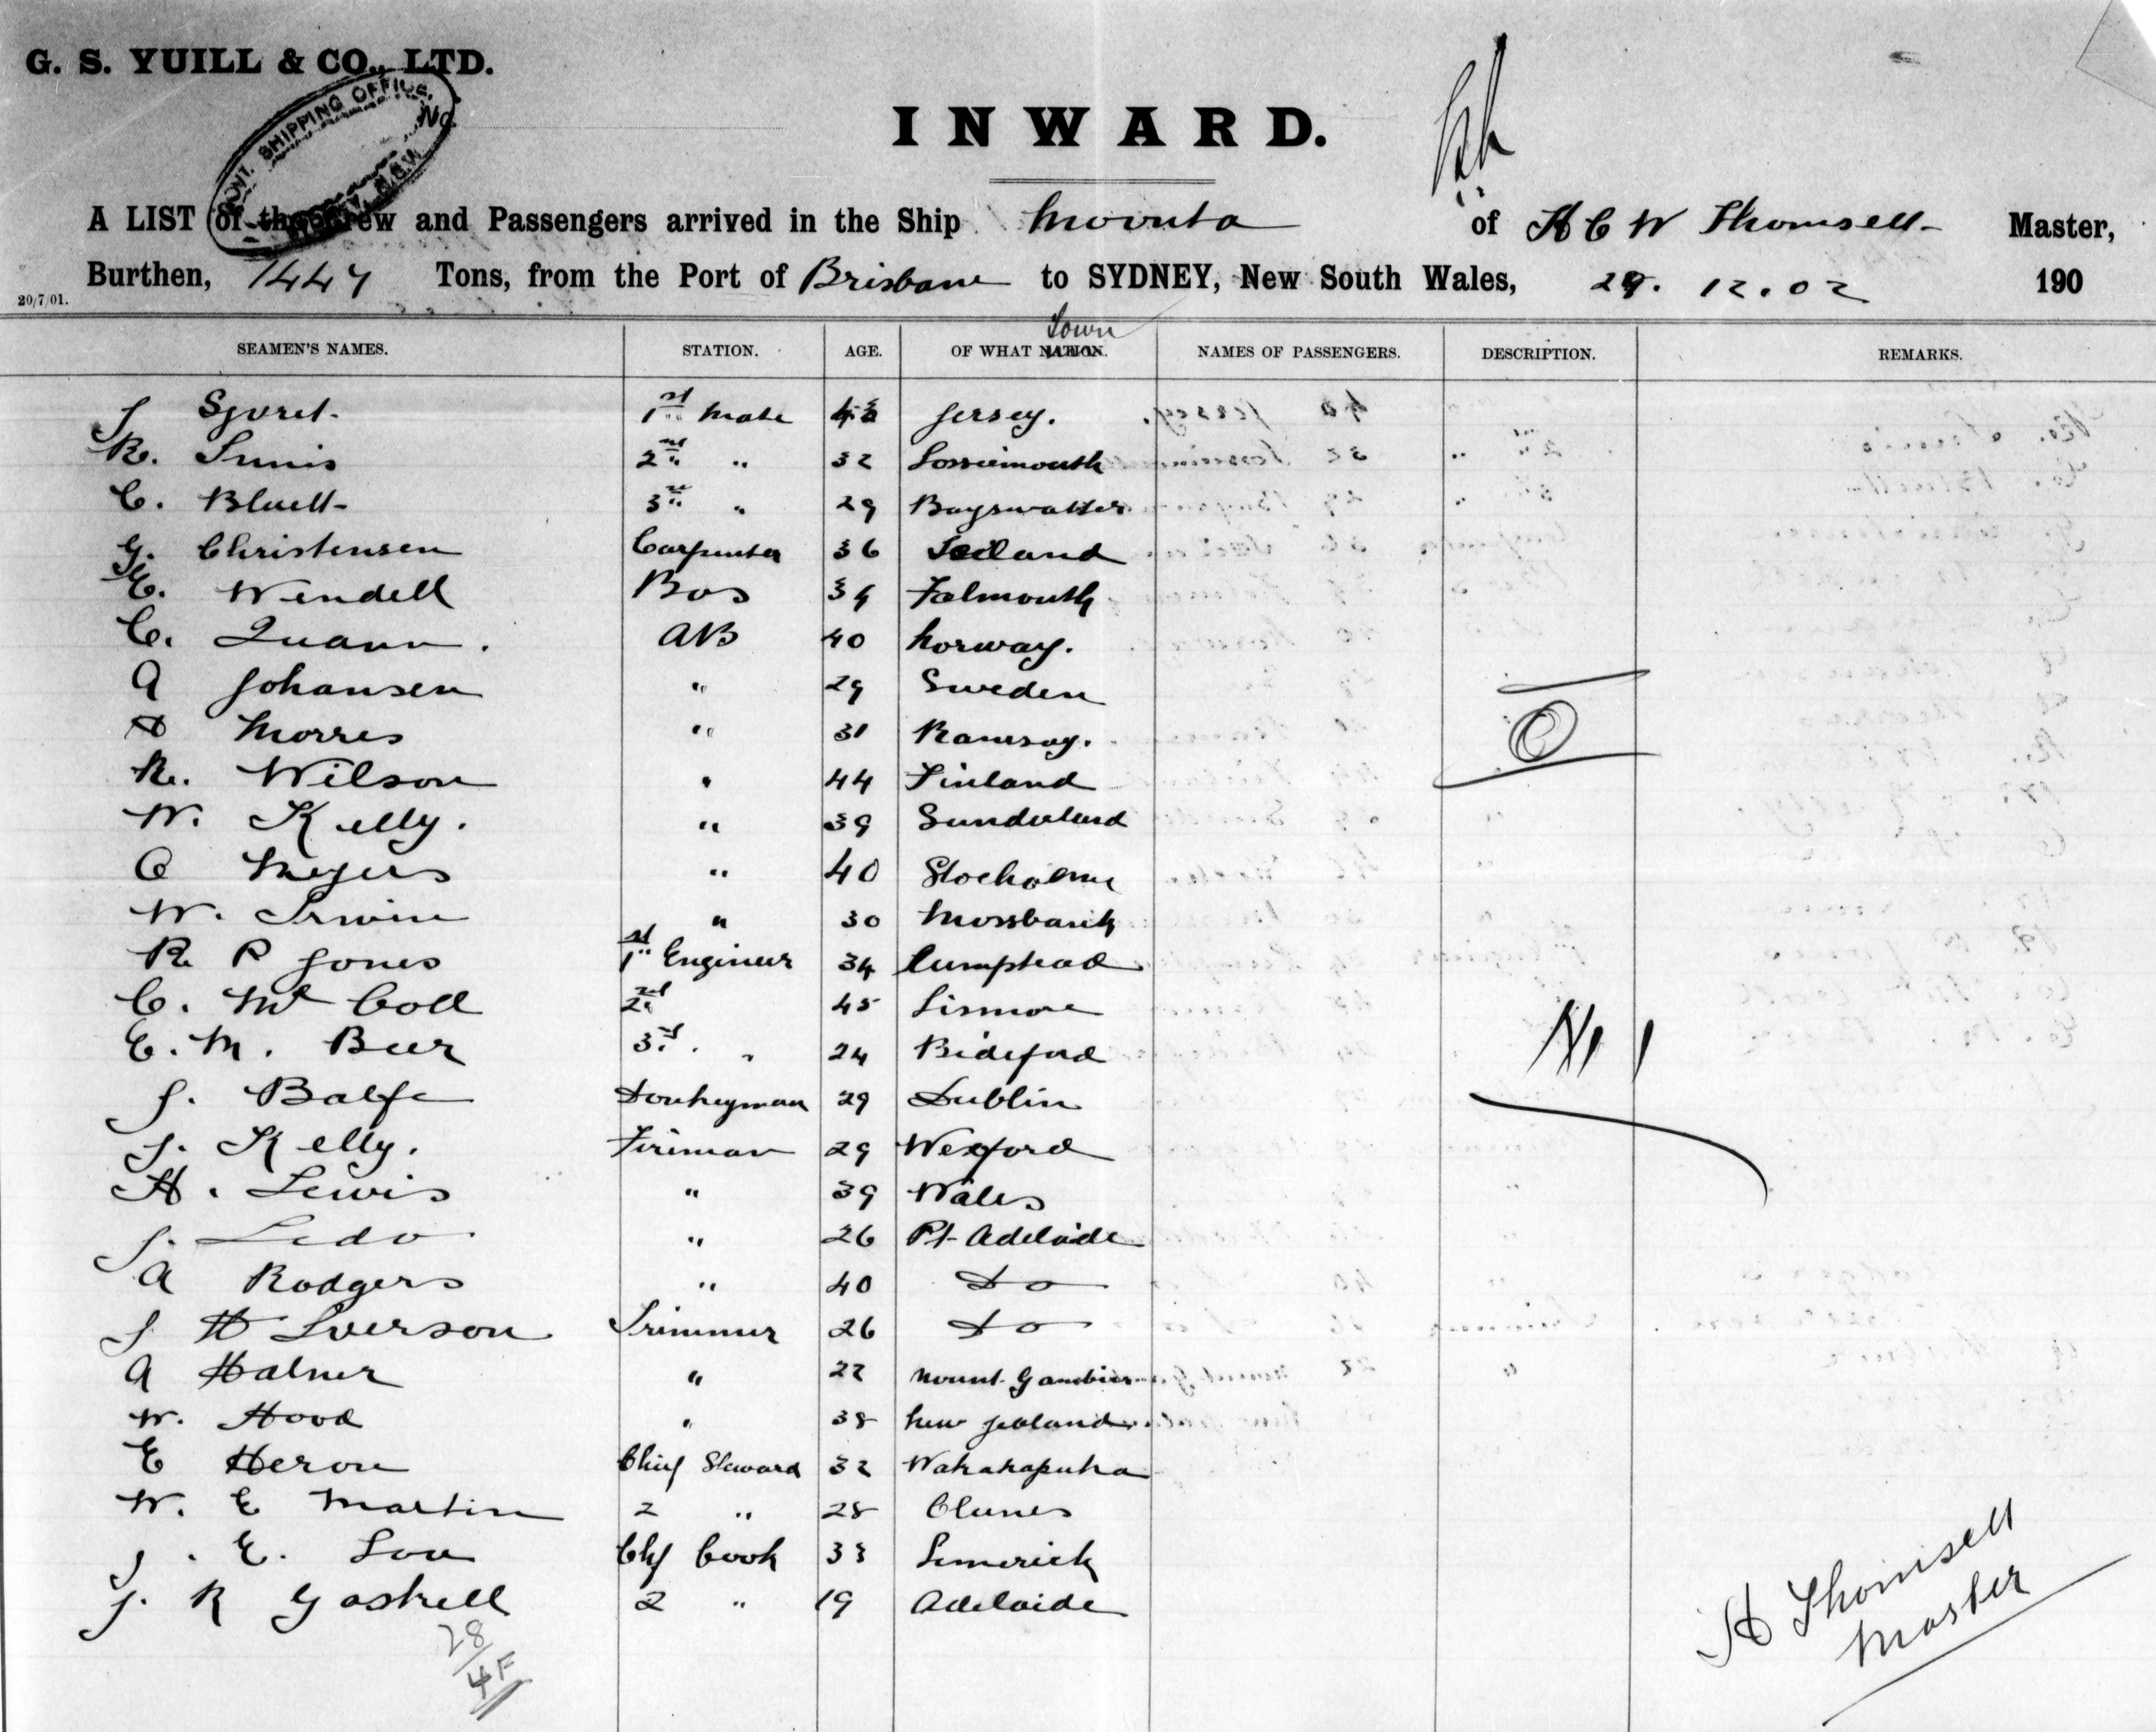 G. S. YUILL & CO., LTD.
GOVT. SHIPPING OFFICE, N.S.W.
No.
INWARD.
A LIST of the Crew and Passengers arrived in the Ship Moonta of H C W Thomsell Master,
Burthen, 1447 Tons, from the Port of Brisbane to SYDNEY, New South Wales, 29. 12. 02 190
20/7/01.
Town
SEAMEN'S NAMES. STATION. AGE. OF WHAT NATION. NAMES OF PASSENGERS. DESCRIPTION. REMARKS.
J 1st Mate Jersey.
R. 2nd " 32 Lossiemouth
C. Bluett 3rd " 29 Bayswatter
G. Christensen Carpenter 36
E. Wendell Bos 39 Falmouth
C. Quann. AB 40 Norway.
A Johansen " 29 Sweden
A Morres " 31 Ramsay.
R. Wilson " 44 Finland
W. Kelly. " 39 Sunderland
C Meyers " 40 Stocholme
W. Irwin " 30 Mossbank
R P Jones 1st Engineer 34
C. Mc Coll 2nd 45 Lismore
E. M. Beer 3rd " 24 Bideford
J. Balfe Donkeyman 29 Dublin
J. Kelly. Fireman 29 Wexford
H. Lewis " 39 Wales
J. Ledo " 26 Pt Adelaide
A Rodgers " 40 Do
J H Iverson Trimmer 26 Do
A Halner " 22 Mount Gambier
W. Hood " 38 New Zealand
E Heron Chief Steward 32 Wakakapuka
W. E Martin 2 " 28 Clunes
J. E. Low Chf Cook 33 Limerick
J. R Gaskell 2 " 19 Adelaide
28
4F
H Thomsell
Master